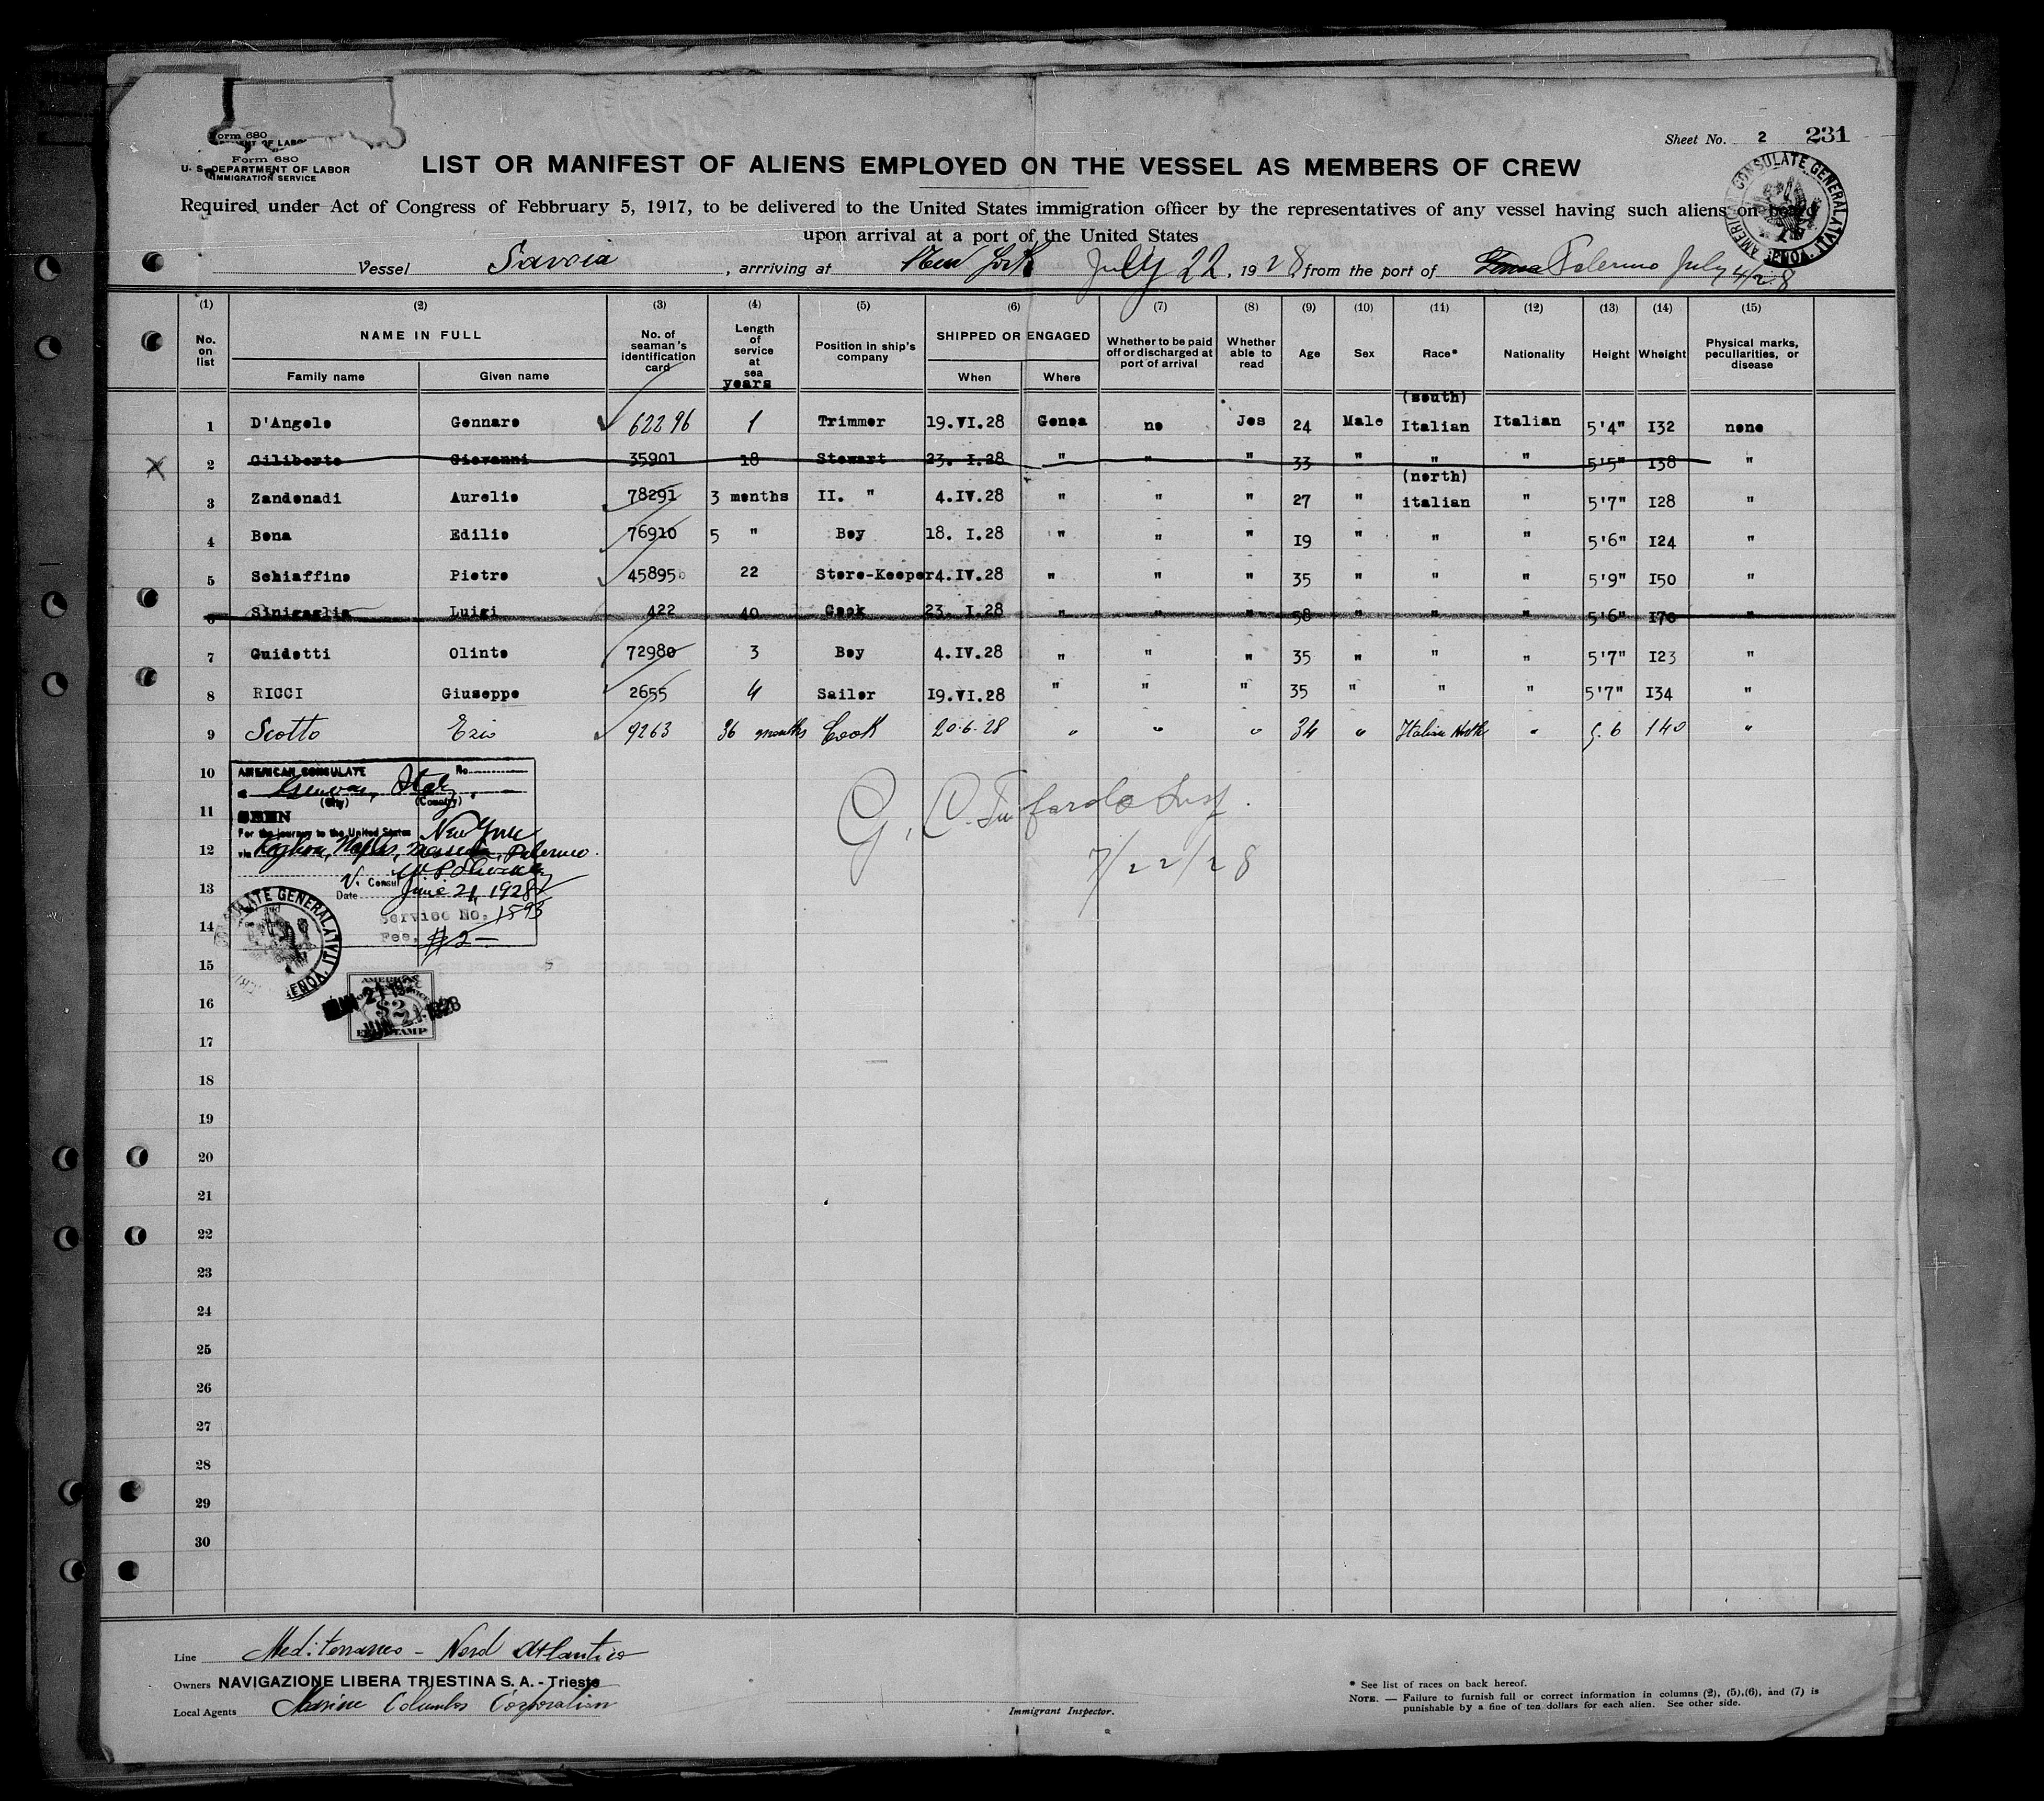 Sheet No. 2 231
Form 680
Form 680
U. S. DEPARTMENT OF LABOR
IMMIGRATION SERVICE
LIST OR MANIFEST OF ALIENS EMPLOYED ON THE VESSEL AS MEMBERS OF CREW
Required under Act of Congress of Febbruary 5, 1917, to be delivered to the United States immigration officer by the representatives of any vessel having such aliens on board
upon arrival at a port of the United States
AMERICAN CONSULATE GENERAL
Vessel Savoia, arrriving at New York July 22, 1928 from the port of Genoa Palermo July 4/28
(1) (2) (3) (4) (5) (6) (7) (8) (9) (10) (11) (12) (13) (14) (15)
No. on list NAME IN FULL Family name Given name No. of seaman's identification card Length of service at sea years Position in ship's company SHIPPED OR ENGAGED When Where Whether to be paid off or discharged at port of arrival Whether able to read Age Sex Race* Nationality Height Wheight Physical marks, peculiarities, or disease
(south)
1 D'Angelo Gennaro 62296 1 Trimmer 19.VI.28 Genoa no Jes 24 Male Italian Italian 5'4" 132 none
2 Ciliberto Giovanni 35901 18 Stewart 23. I.28 " " " 33 " " " 5'5" 138 "
(north)
3 Zandonadi Aurelio 78291 3 months II. " 4.IV.28 " " " 27 " italian " 5'7" 128 "
4 Bona Edilio 76910 5 " Boy 18. I.28 " " " 19 " " " 5'6" 124 "
5 Schiaffino Pietro 45895 22 Store-Keeper 4.IV.28 " " " 35 " " " 5'9" 150 "
6 Sinigaglia Luigi 422 40 Cook 23. I.28 " " " 58 " " " 5'6" 170 "
7 Guidotti Olinto 72980 3 Boy 4.IV.28 " " " 35 " " " 5'7" 123 "
8 RICCI Giuseppe 2655 4 Sailor 19.VI.28 " " " 35 " " " 5'7" 134 "
9 Scotto Ezio 9263 36 months Cook 20.6.28 " " " 34 " Italian North " 5.6 140 "
10
11
12
13
14
15
16
17
18
19
20
21
22
23
24
25
26
27
28
29
30
AMERICAN CONSULATE No.
Genoa, Italy
(City) (Country)
SEEN
For the journey to the United States New York
via Leghorn, Naples, Messina, Palermo.
V. Consul
Date June 21, 1928
Service No. 1593
Fee. $2—
CONSULATE GENERAL
AMERICAN
$2
FEE STAMP
JUN 21 1928
7/22/28
Line Mediterraneo - Nord Atlantico
Owners NAVIGAZIONE LIBERA TRIESTINA S. A. - Trieste
Local Agents Marine Columbos Corporation
Immigrant Inspector.
* See list of races on back hereof.
NOTE. — Failure to furnish full or correct information in columns (2), (5),(6), and (7) is
punishable by a fine of ten dollars for each alien. See other side.